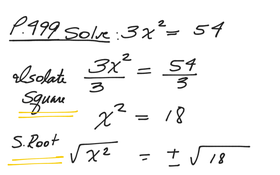 P.499 Solve: 3x² = 54
Isolate Square 3x²/3 = 54/3
x² = 18
S.Root √x² = ±√18